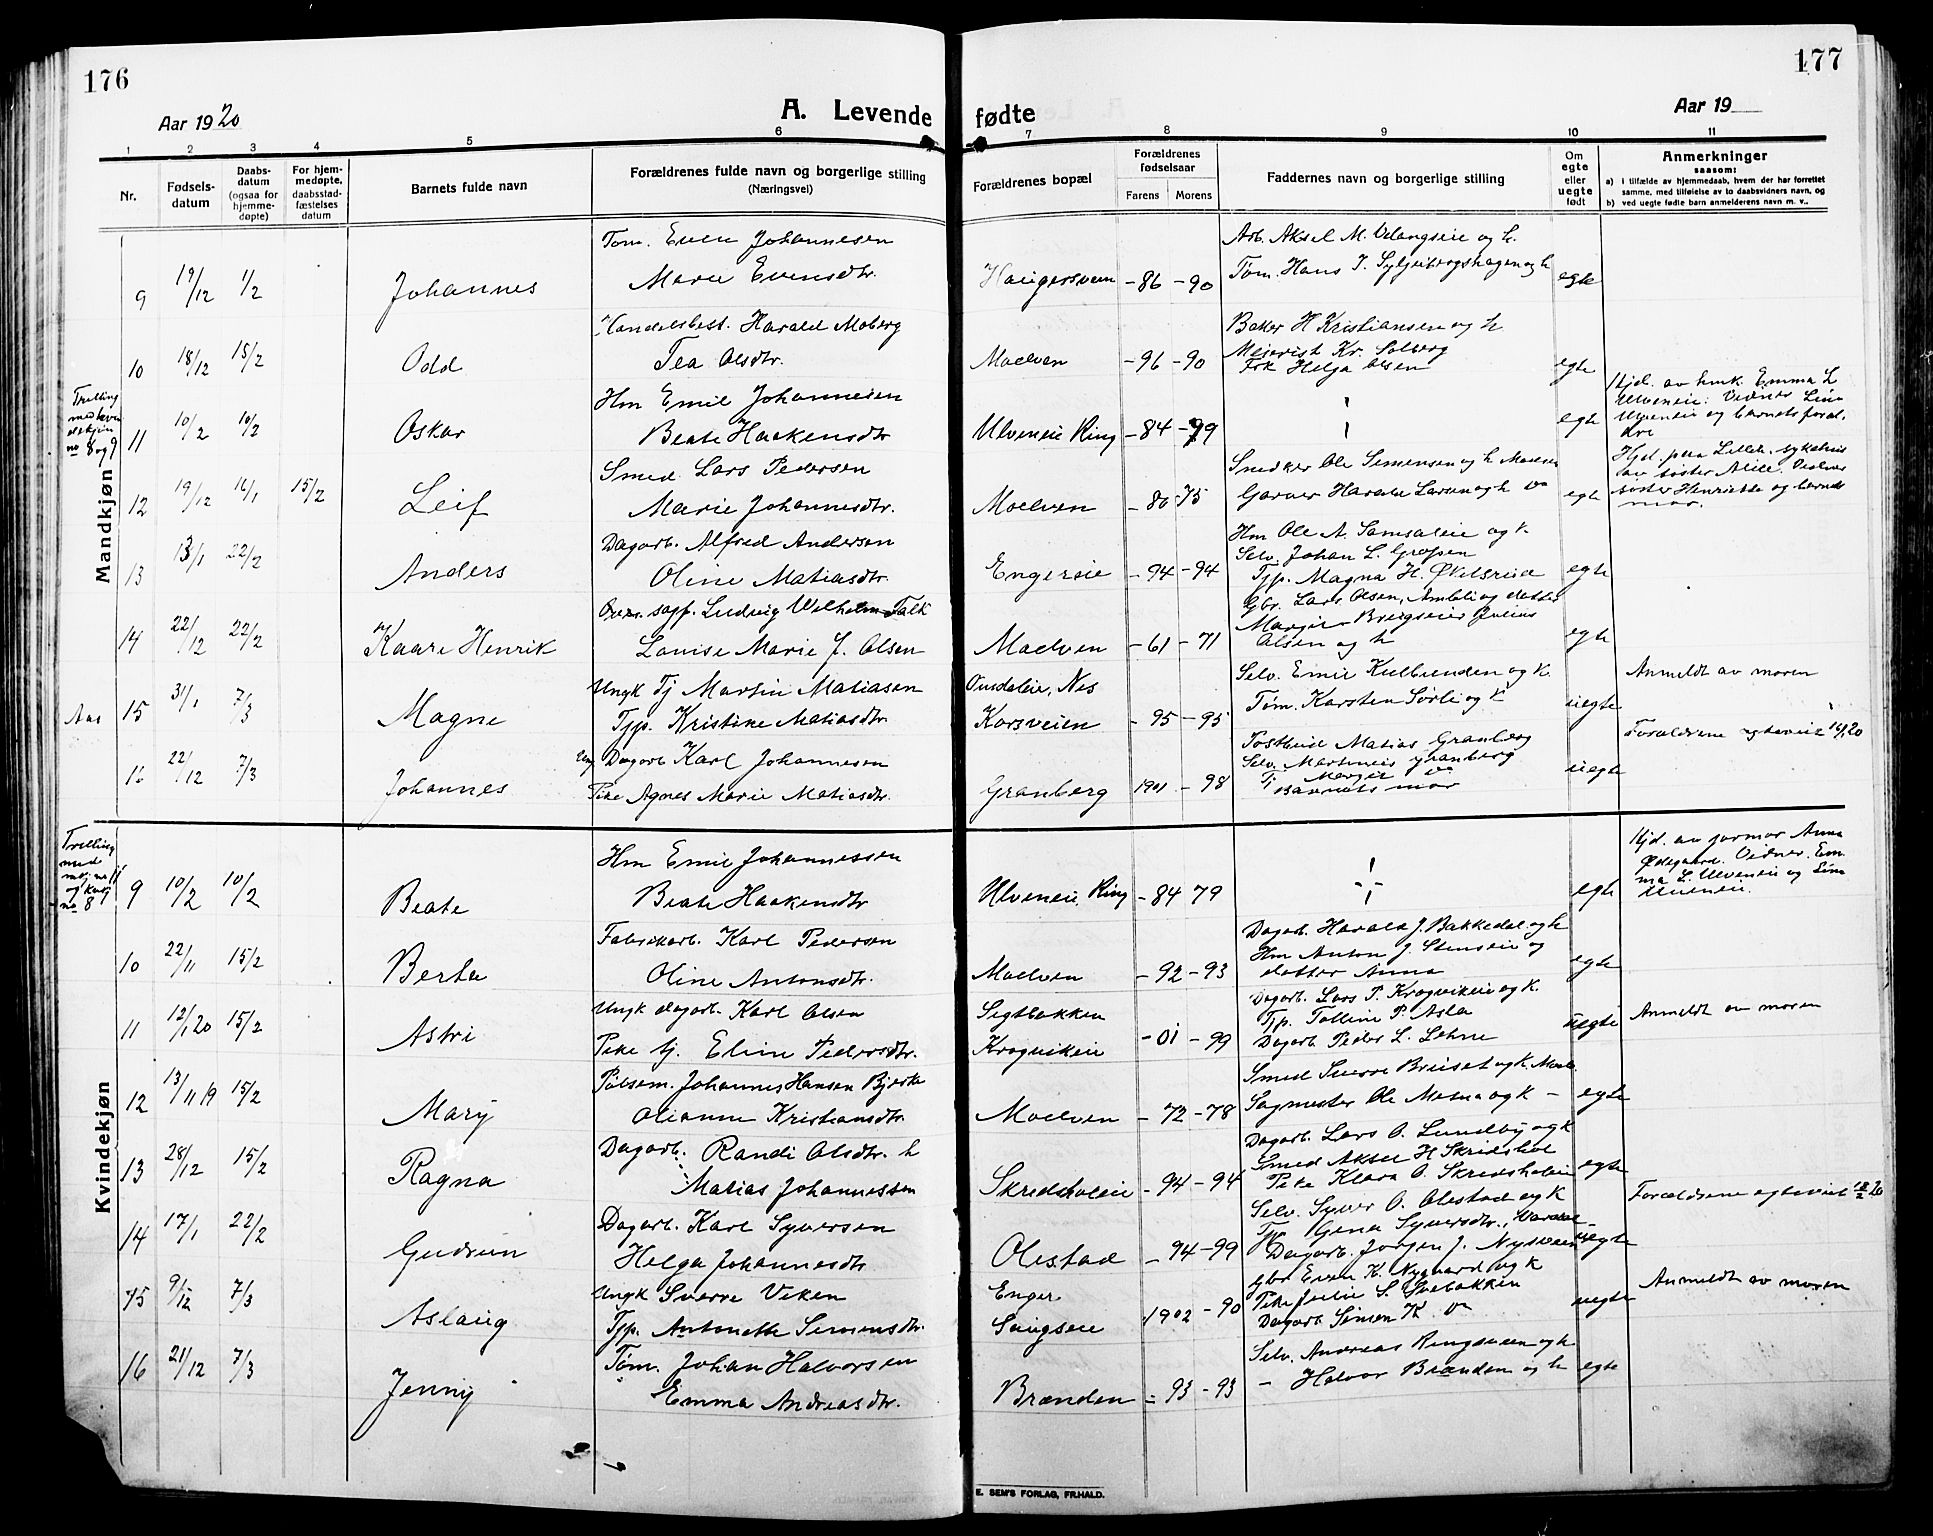 176
177
Aar 1920
A. Levende fødte
Aar 19
1 2 3 4 5 6 7 8 9 10 11
Nr.
Fødsels-
datum
Daabs-
datum
(ogsaa for
hjemme-
døpte)
For hjem-
medøpte,
daabsstad-
fæstelses
datum
Barnets fulde navn
Forældrenes fulde navn og borgerlige stilling
(Næringsvei)
Forældrenes bopæl
Forældrenes
fødselsaar
Farens Morens
Faddernes navn og borgerlige stilling
Om
egte
eller
uegte
født
Anmerkninger
saasom:
a) i tilfælde av hjemmedaab, hvem der har forrettet
samme, med tilføielse av to daabsvidners navn, og
b) ved uegte fødte barn anmelderens navn m. v..
Mandkjøn
Tøm. Even Johannesen Arb. Aksel M. Velangseie og h.
9 19/12 1/2 Johannes Marie Evensdtr. Haugersveen -86 -90 Tøm. Hans J. Syljebergshagen og h egte
Handelsbest. Harald Moberg Baker H Kristiansen og h
10 18/12 15/2 Odd Tea Olsdtr. Moelven -96 -90 Meierist Kr. Solberg egte
Frk Helga Olsen
Trilling
no 8 og 9
Hm Emil Johannesen Hjd. av Emma L
Ulveneie. Vidner Lina
11 10/2 10/2 Oskar Beate Haakensdtr Ulveneie Ring -84 -79 egte Ulveneie og barnets foræl-
dre
Smed Lars Pedersen Snedker Ole Simensen og h Moelven
Hjd. paa Lilleh. sykehus
av søster
12 19/12 16/1 15/2 Leif Marie Johannesdtr. Moelven -80 -75 Garver Harald Larsen og h do egte søster Henriette og barnets
mor.
Dagarb. Alfred Andersen Hm Ole A. Samsaleie og k
Selv. Johan L. Grossen
13 13/1 22/2 Anders Oline Matiasdtr. Engereie -94 -94 Tjp. Magna H. Økelsrud egte
sagf. Ludvig Wilhelm Falk Gbr. Lars Olsen, Ambli og datter
14 22/12 22/2 Kaare Henrik Louise Marie J. Olsen Moelven -61 -71 Olsen og h egte
Ungk Tj Martin Matiasen Nes Selv. Emil Kulbunden og k. Anmeldt av moren
Aas 15 31/1 7/3 Magne Tjp. Kristine Matiasdtr. Korsveien -95 -95 Tøm. Karsten Sørli og k uegte
Ung Dagarb Karl Johannesen Postbud Matias Granberg Forældrene egteviet
Selv. Martinus Granberg
16 22/12 7/3 Johannes Pike Agnes Marie Matiasdtr. Granberg 1901 -98 Tj Margit do uegte
Barnets mor
Kvindekjøn
Trilling
med
no 8
Hm Emil Johannessen Hjd. av jormor Anna
Ødegaard. Vidner. Em-
9 10/2 10/2 Beate Beate Haakensdtr Ulveneie, Ring -84 79 egte ma L. Ulveneie og Lina
Ulveneie.
Fabrikarb. Karl Pedersen Dagarb. Harald J. Bakkedal og h
10 22/11 15/2 Berta Oline Antonsdtr. Moelven -92 -93 Hm Anton J. Stenseie og egte
datter Anna
Ungk dagarb. Karl Olsen Segtbakken Dagarb. Lars P. Krogvikeie og k. Anmeldt av moren
11 12/1 20 15/2 Astri Pike tj. Eline Pedersdtr. Krogvikeie -01 -99 Tjp. Tolline P. Asla uegte
Dagarb. Peder L. Lehne
Pølsem. Johannes Hansen Bjerke Smed Sverre Bruset og k. Moelv.
12 13/11 19 15/2 Mary Olianne Kristiansdtr. Moelven -72 -78 Sagmester Ole Mosna og k - egte
Dagarb. Randi Olsdtr. h Dagarb. Lars O. Lundby og k
13 28/12 15/2 Ragna Matias Johannessen Skredsholeie -94 -94 Smed Aksel H Skredshol egte
Pike Klara O. Skredsholeie
Dagarb. Karl Syversen Selv. Syver O. Olestad og k Forældrene egteviet
14 17/1 22/2 Gudrun Helga Johannesdtr Olestad -94 -99 Tjp Gina Syversdtr. uegte
Dagarb. Jørgen J. Nysveen
Ungk Sverre Viken Enger Gbr Even K. Nygaard og k Anmeldt av moren
15 9/12 7/3 Aslaug Tjp. Antonette Simensdtr. Saugseie 1902 -90 Pike Julie S. uegte
Dagarb Simen K do
Tøm. Johan Halvorsen Selv. Andreas Ringsveen og h
16 21/12 7/3 Jenny Emma Andreasdtr. Brænden -93 -93 - Halvor Brænden og h egte
E. SEM'S FORLAG, FR.HALD.